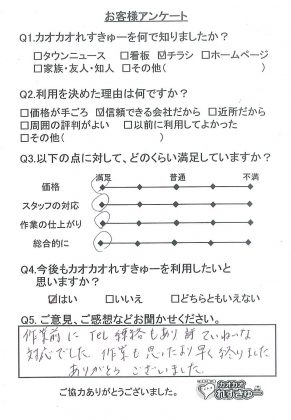 お客様アンケート
Q1.カオカオれすきゅーを何で知りましたか？
□タウンニュース □看板 ☑チラシ □ホームページ
□家族・友人・知人 □その他( )
Q2.利用を決めた理由は何ですか？
□価格が手ごろ ☑信頼できる会社だから □近所だから
□周囲の評判がよい □以前に利用してよかった
□その他( )
Q3.以下の点に対して、どのくらい満足していますか？
満足 普通 不満
価格
スタッフの対応
作業の仕上がり
総合的に
Q4.今後もカオカオれすきゅーを利用したいと
思いますか？
☑はい □いいえ □どちらともいえない
Q5.ご意見、ご感想などお聞かせください。
作業前に TEL 連絡もあり ていねいな
対応でした。作業も思ったより早く終りました
ありがとうございました。
ご協力ありがとうございました。
カオカオ
れすきゅー